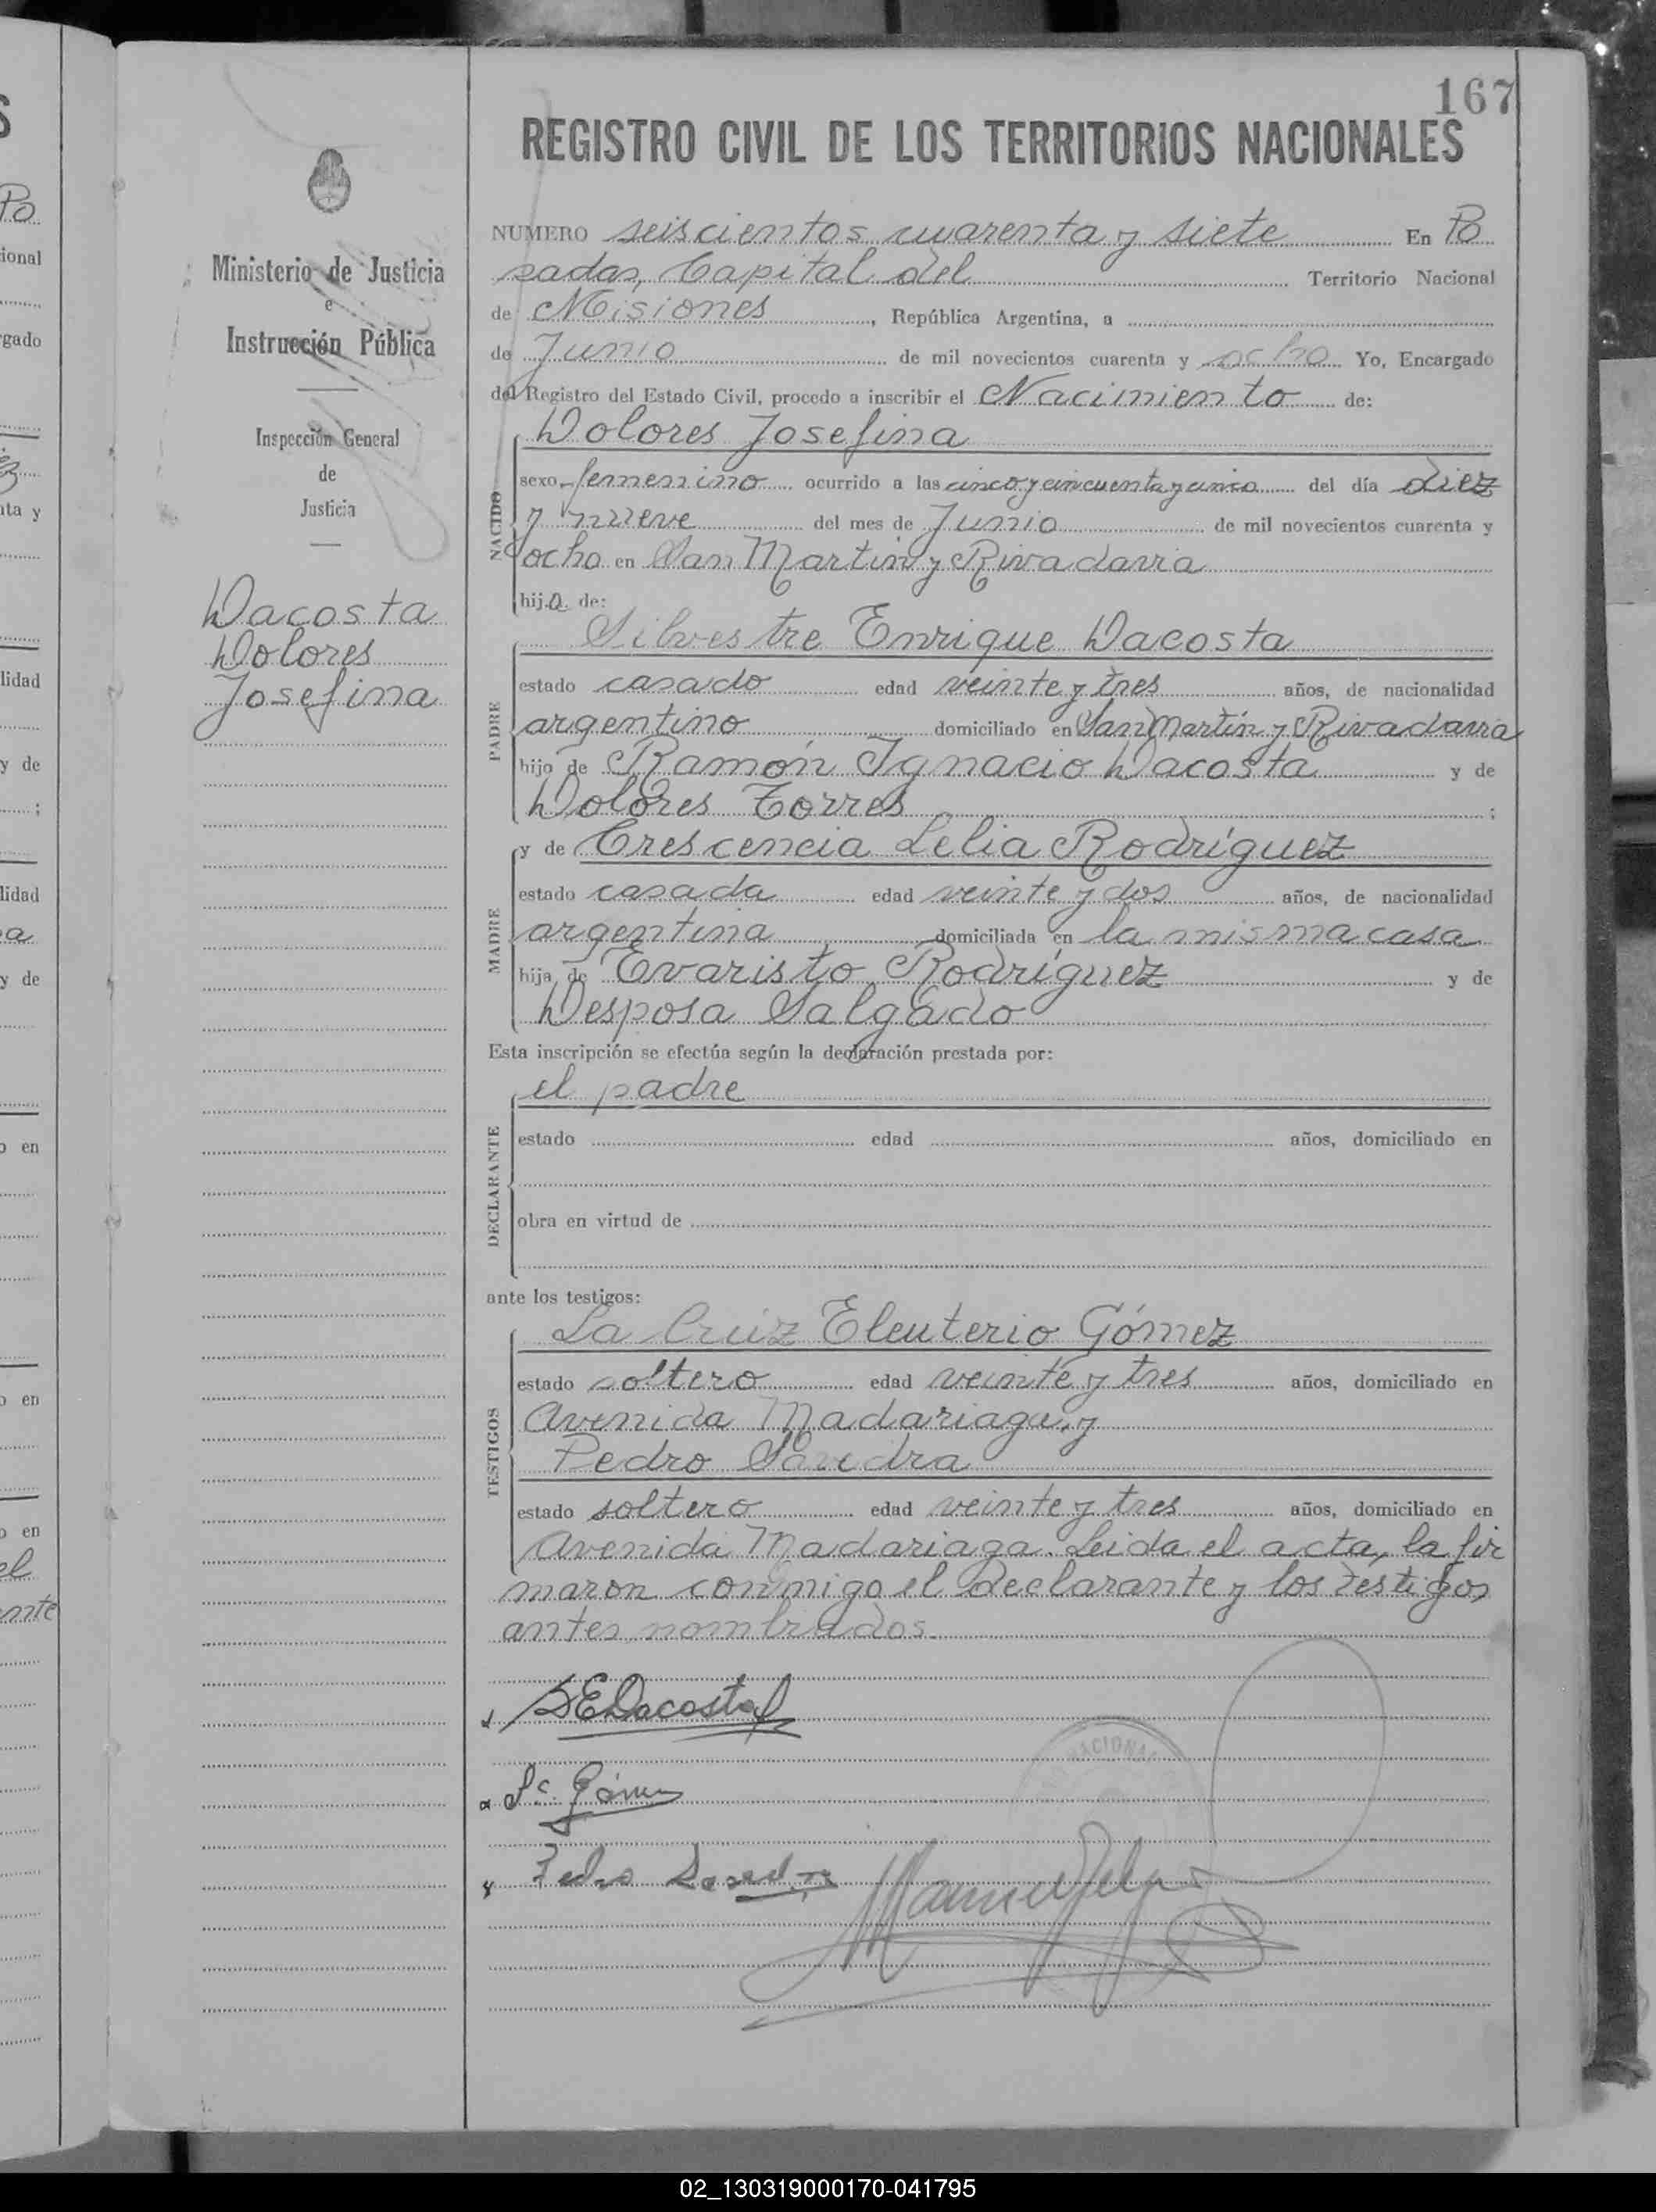 167
REGISTRO CIVIL DE LOS TERRITORIOS NACIONALES
Ministerio de Justicia
e
Instrucción Pública
Inspección General
de
Justicia
Dacosta
Dolores
Josefina
NUMERO seiscientos cuarenta y siete En Po
sadas, Capital del Territorio Nacional
de Misiones, República Argentina, a
de Junio de mil novecientos cuarenta y ocho Yo, Encargado
del Registro del Estado Civil, procedo a inscribir el Nacimiento de:
NACIDO
Dolores Josefina
sexo femenino ocurrido a las cinco y cincuenta y cinco del día diez
y nueve del mes de Junio de mil novecientos cuarenta y
ocho en San Martín y Rivadavia
hija de:
PADRE
Silvestre Enrique Dacosta
estado casado edad veinte y tres años, de nacionalidad
argentino domiciliado en San Martín y Rivadavia
hijo de Ramón Ignacio Dacosta y de
Dolores Torres ;
MADRE
y de Crescencia Lelia Rodríguez
estado casada edad veinte y dos años, de nacionalidad
argentina domiciliada en la misma casa
hija de Evaristo Rodríguez y de
Desposa Salgado
Esta inscripción se efectúa según la declaración prestada por:
DECLARANTE
el padre
estado edad años, domiciliado en
obra en virtud de
ante los testigos:
TESTIGOS
La Cruz Eleuterio Gómez
estado soltero edad veinte y tres años, domiciliado en
Avenida Madariaga, y
Pedro Savedra
estado soltero edad veinte y tres años, domiciliado en
Avenida Madariaga. Leida el acta, la fir
maron conmigo el declarante y los testigos
antes nombrados.
SEDacosta
Gómez
NACIONAL
Pedro Savedra
02_130319000170-041795